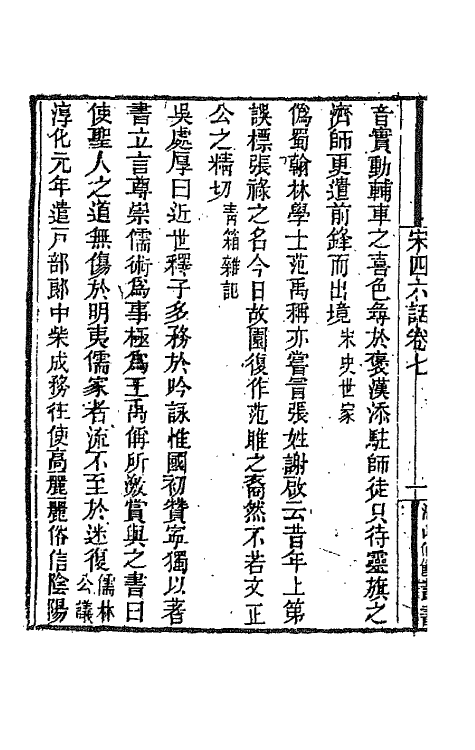 宋四六話卷七
音實動輔車之喜色尋於褒漢添駐師徒只待靈旗之
濟師更遣前鋒而出境宋史世家
偽蜀翰林學士范禹稱亦嘗冒張姓謝啟云昔年上第
誤標張祿之名今日故園復作范雎之裔然不若文正
公之精切青箱雜記
吳處厚曰近世釋子多務於吟詠惟國初贊寧獨以著
書立言尊崇儒術為事極為王禹偁所激賞與之書曰
使聖人之道無傷於明夷儒家者流不至於迷復儒林公議
淳化元年遣戸部郞中柴成務往使高麗麗俗信陰陽